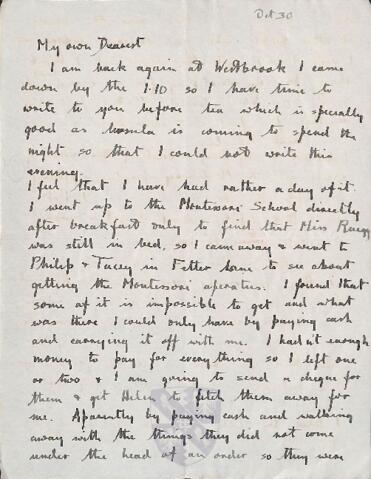 Oct 30
My own Dearest
I am back again at Westbrook I came
down by the 1.10 so I have time to
write to you before tea which is specially
good as Ursula is coming to spend the
night so that I could not write this
evening.
I feel that I have had rather a day of it.
I went up to the Montessori School directly
after breakfast only to find that Miss
was still in bed, so I came away & went to
Philip & Tacey in Fetter Lane to see about
getting the Montessori aparatus. I found that
some of it is impossible to get and what
was there I could only have by paying cash
and carrying it off with me. I had'nt enough
money to pay for everything so I left one
or two & I am going to send a cheque for
them & get Helen to fetch them away for
me. Aparently by paying cash and walking
away with the things they did not come
under the head of an order so they were